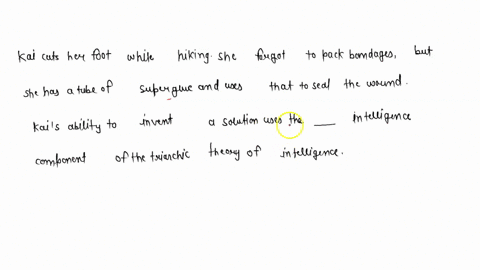 Kai cuts her foot while hiking. she forgot to pack bandages, but
she has a tube of superglue and uses that to seal the wound.
Kai's ability to invent a solution uses the ___ intelligence
component of the triarchic theory of intelligence.